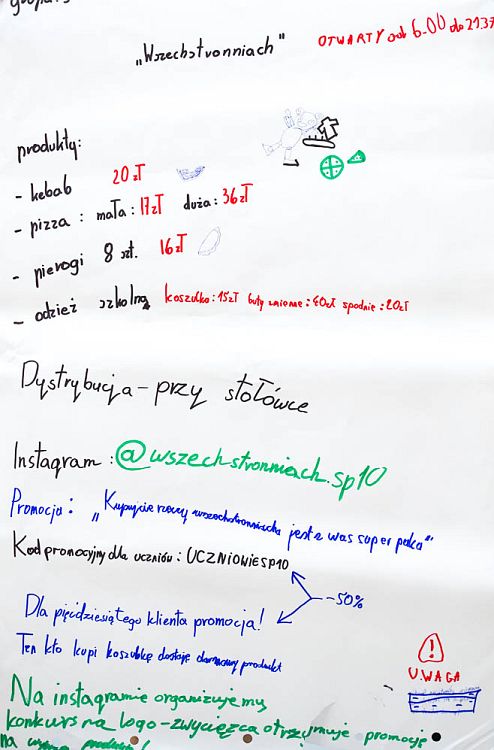 „Wszechstronniach"
OTWARTY od 6.00 do 21.37
produkty:
- kebab 20zł
- pizza : mała : 17zł duża : 36zł
- pierogi 8 szt. 16zł
- odzież szkolna koszulka : 15zł buty zmienne : 40zł spodnie : 20zł
Dystrybucja - przy stołówce
Instagram : @wszechstronniach.sp10
Promocja : „Kupujcie rzeczy wszechstronniacha jest z was super paka"
Kod promocyjny dla uczniów : UCZNIOWIESP10
-50%
Dla pięćdziesiątego klienta promocja!
Ten kto kupi koszulkę dostaję darmowy produkt
UWAGA
Na instagramie organizujemy
konkurs na logo - zwycięzca otrzymuje promocję
na